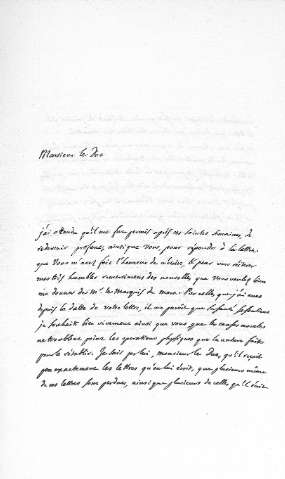 Monsieur le Duc
j'ai attendu qu'il me fut permis après les saintes semaines, de
redevenir profane, ainsi que vous, pour répondre à la lettre
que vous m'avez fait l'honneur de m'écrire, et pour vous
mes très humbles remerciements des nouvelles que vous voulez bien
me donner de Mr le Marquis de
depuis la datte de votre lettre, il me paroît que
je souhaite bien vivement ainsi que vous que les causes morales
ne troublent point les opérations physiques que la nature faite
pour le rétablir. Je sais par lui, monsieur le Duc, qu'il reçoit
peu exactement les lettres qu'on lui écrit, que plusieurs même
de mes lettres sont perdues, ainsi que plusieurs de celles qu'il écrit